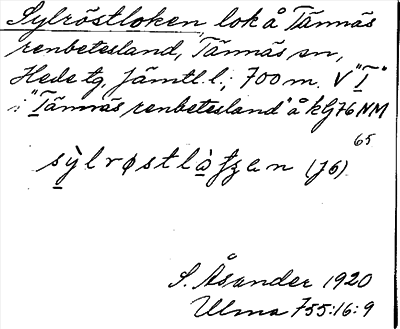 Sylröstloken, lok å Tännäs
renbetesland, Tännäs sn,
Hede tg, Jämtl. l.; 700 m. V "T"
i "Tännäs renbetesland" å kbl 76 NM
65
(J6)
S. Åsander 1920
Ulma 755:16:9